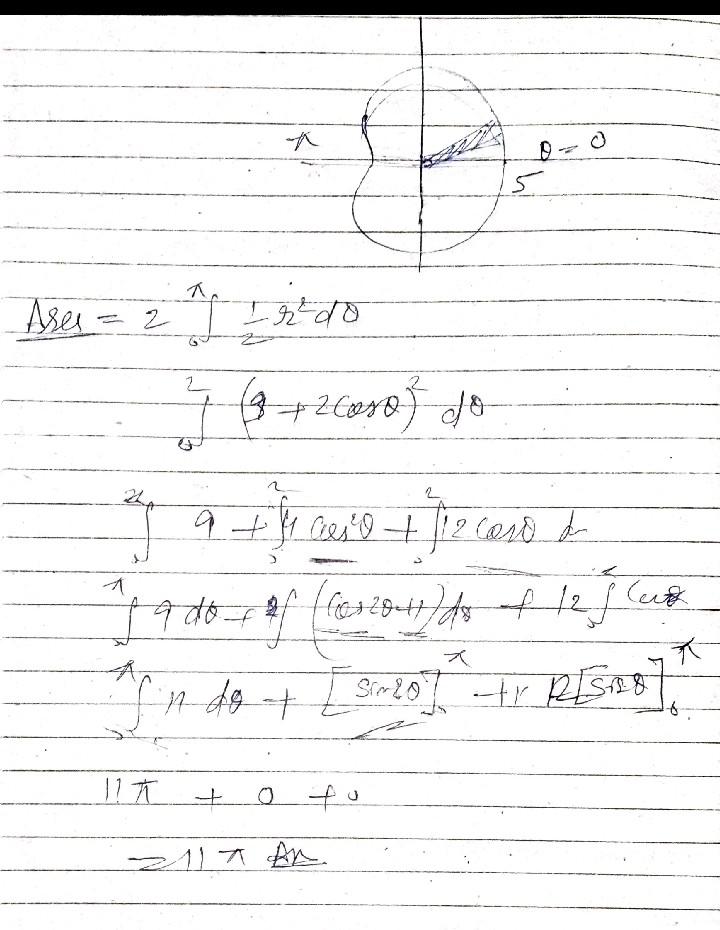 π
θ = 0
5
Area = 2 ∫₀^π 1/2 r² dθ
∫₀^2 (3 + 2cosθ)² dθ
∫ 9 + ∫ 4 cos²θ + ∫ 12 cosθ d
∫^π 9 dθ + 2∫ (cos2θ+1) dθ + 12 ∫ cosθ
∫^π 11 dθ + [sin2θ]₀^π + 12[sinθ]₀^π
11π + 0 + 0
= 11π An